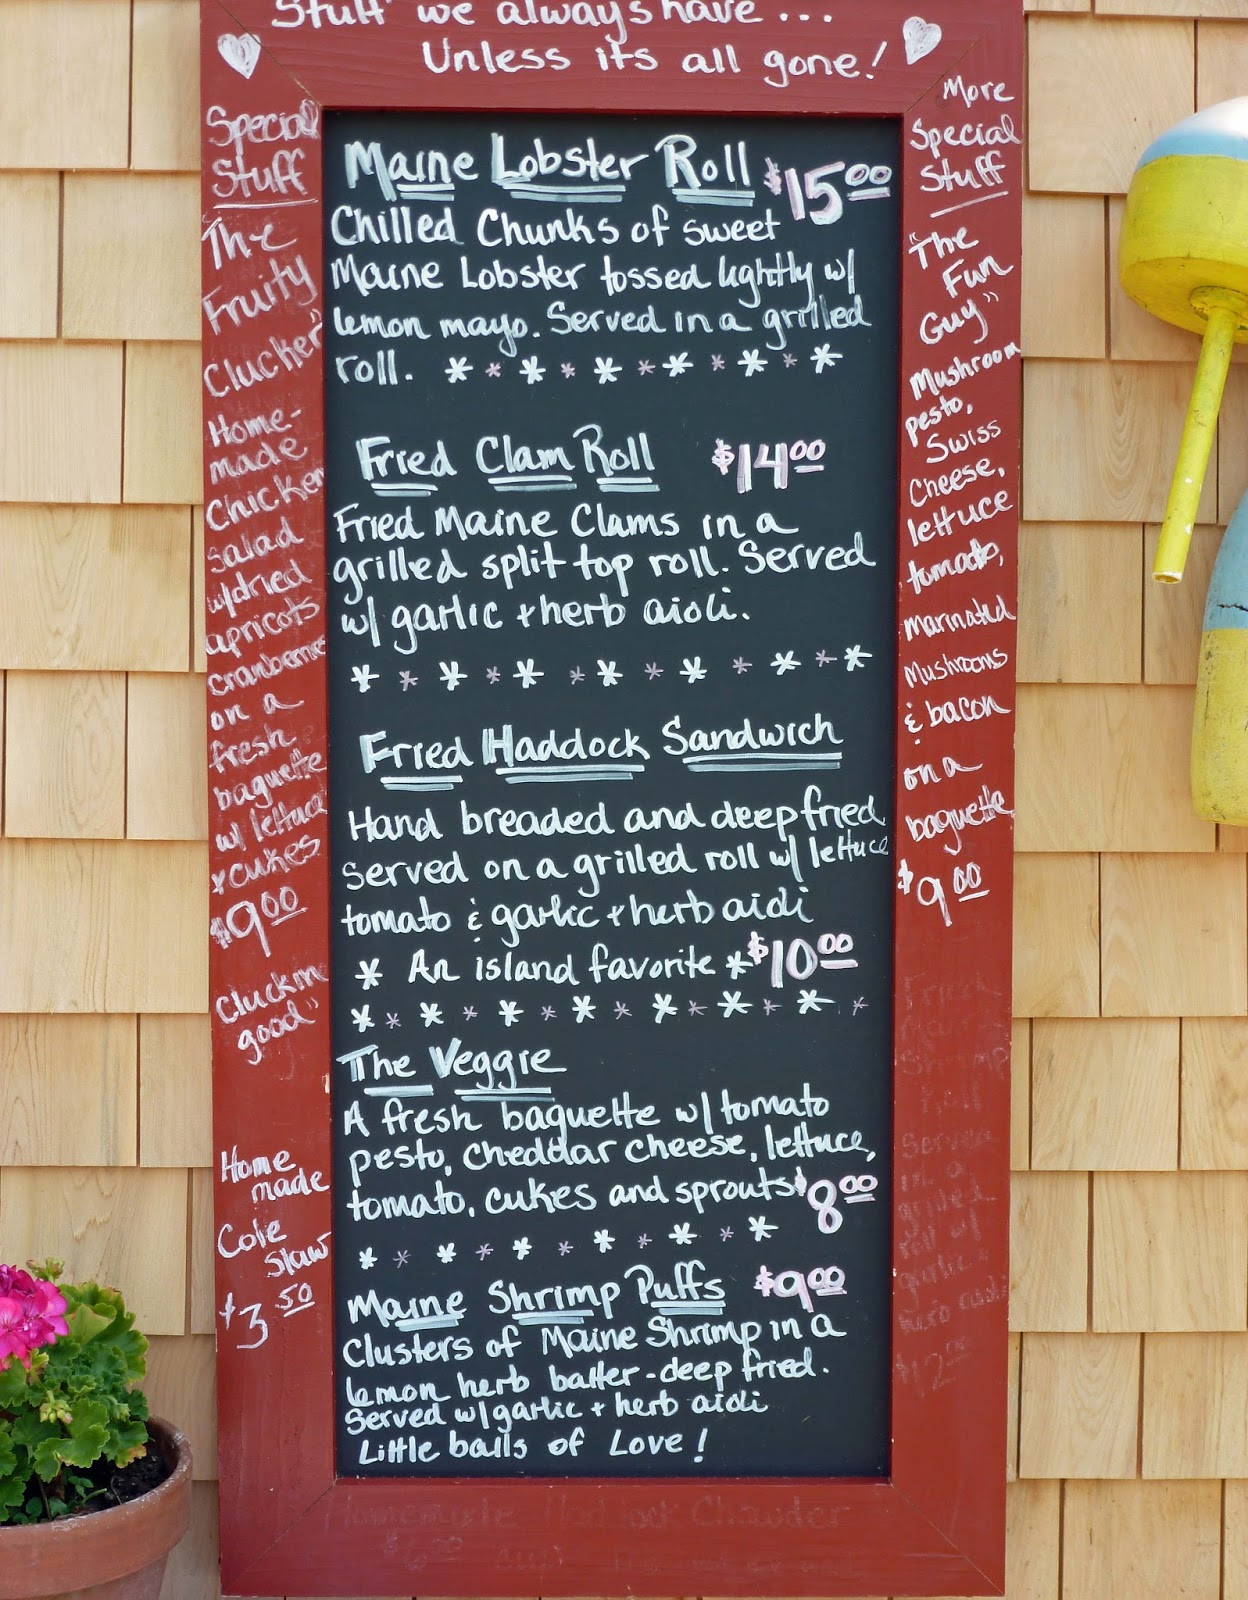 Stuff we always have...
Unless its all gone!
Special
Stuff
The
Fruity
Clucker"
Home-
made
Chicken
salad
w/dried
apricots
cranberries
on a
fresh
baguette
w/ lettuce
+cukes
$9.00
Cluckin
good"
Home
made
Cole
Slaw
$3.50
Maine Lobster Roll $15.00
Chilled Chunks of sweet
Maine Lobster tossed lightly w/
lemon mayo. Served in a grilled
roll. * * * * * * * * * * *
Fried Clam Roll $14.00
Fried Maine Clams in a
grilled split top roll. Served
w/ garlic + herb aioli.
* * * * * * * * * * * *
Fried Haddock Sandwich
Hand breaded and deep fried
Served on a grilled roll w/ lettuce
tomato & garlic + herb aioli
* An island favorite * $10.00
* * * * * * * * * * * * * *
The Veggie
A fresh baguette w/ tomato
pesto, cheddar cheese, lettuce,
tomato, cukes and sprouts $8.00
* * * * * * * * * * *
Maine Shrimp Puffs $9.00
Clusters of Maine Shrimp in a
lemon herb batter - deep fried.
Served w/ garlic + herb aioli
Little balls of Love!
More
Special
Stuff
"The
Fun
Guy"
Mushroom
pesto,
Swiss
Cheese,
lettuce
tomato,
Marinated
Mushrooms
& bacon
on a
baguette
$9.00
Shrimp
Roll
Served
in a
grilled
roll w/
garlic +
herb aioli
$12.00
Homemade Haddock Chowder
$6.00 cup